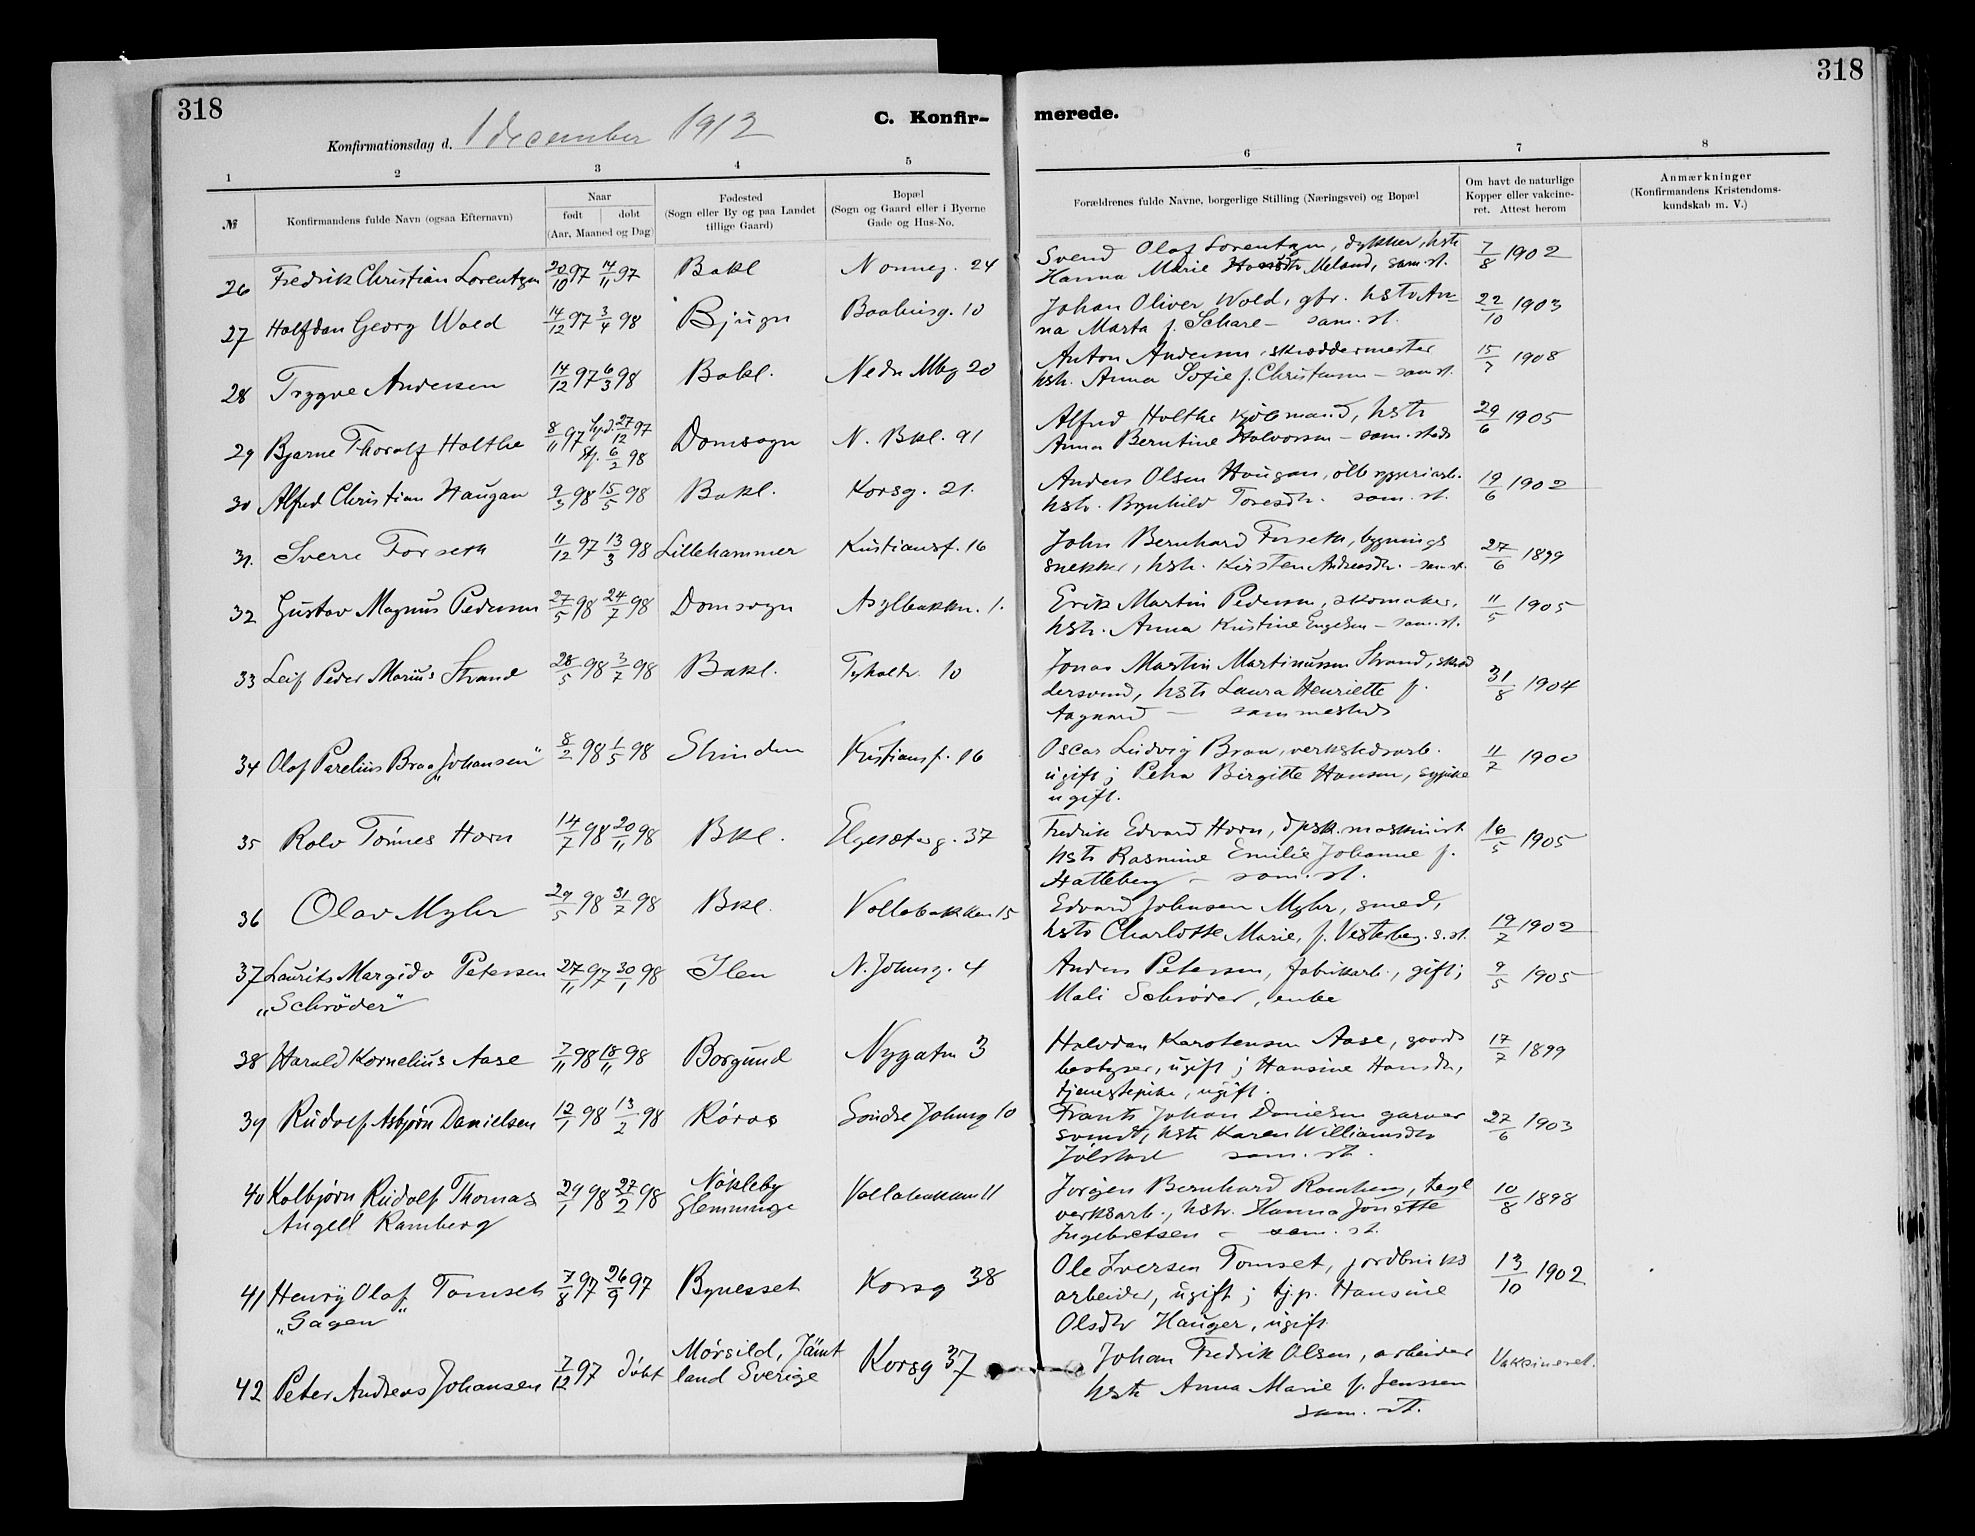 318
318
Konfirmationsdag d. 1 december 1912
C. Konfir-
merede.
1 2 3 4 5 6 7 8
№
Konfirmandens fulde Navn (ogsaa Efternavn)
Naar
født døbt
(Aar, Maaned og Dag)
Fødested
(Sogn eller By og paa Landet
tillige Gaard)
Bopæl
(Sogn og Gaard eller i Byerne
Gade og Hus-No.
Forældrenes fulde Navne, borgerlige Stilling (Næringsvei) og Bopæl
Om havt de naturlige
Kopper eller vakcine-
ret. Attest herom
Anmærkninger
(Konfirmandens Kristendoms-
kundskab m. V.)
26 Fredrik Christian Lorentzen 20/10 97 14/11 97 Bakl Nonneg. 24
Svend Olaf Lorentzen, dykker, hstr
Hanna Marie Meland, sam. st. 7/8 1902
27 Halfdan Georg Wold 14/12 97 3/4 98 Bjugn Baahusg. 10
Johan Oliver Wold, gbr. hstr An-
na Marta f. Schare - sam. st. 22/10 1903
28 Trygve Andersen 14/12 97 6/3 98 Bakl. Nedre Mbg 20
Anton Andersen, skræddermester
hstr. Anna Sofie f. Christensen - sam st. 15/7 1908
29 Bjarne Thoralf Holthe 8/11 97 hjd. 27/12 97
stf. 6/2 98 Domsogn N. Bkl. 91
Alfred Holthe kjøbmand, hstr
Anna Berntine Halvorsen - sam. steds 29/6 1905
30 Alfred Christian Haugan 9/3 98 15/5 98 Bakl. Korsg. 21.
Anders Olsen Haugan, ølbryggeriarb.
hstr. Brynhild Toresdtr. sam. st. 19/6 1902
31. Sverre Forseth 11/12 97 13/3 98 Lillehammer Kristiansf. 16
John Bernhard Forseth, bygnings
snekker, hstr. Kirsten Andreasdtr. - sam st. 27/6 1899
32 Gustav Magnus Pedersen 27/5 98 24/7 98 Domsogn Asylbakken. 1.
Erik Martin Pedersen, skomaker,
hstr. Anna Kristine Engelsen - sam. st. 11/5 1905
33 Leif Peder Marius Strand 28/5 98 3/7 98 Bakl. Tyholtv. 10
Jonas Martin Martinussen Strand, skræd
dersvend, hstr Laura Henriette f.
Aagaard - sammesteds 31/8 1904
34 Olaf Parelius Braa „Johansen“ 8/2 98 1/5 98 Strinden Kristiansf. 16
Oscar Ludvig Braa, verkstedsarb.
ugift; Petra Birgitte Hansen, sypike
ugift. 11/7 1900
35 Rolv Tønnes Horn 14/7 98 20/11 98 Bkl. Elgesæterg. 37
Fredrik Edvard Horn, dpsk. maskinist
hstr Rasmine Emilie Johanne f.
Hatteberg - sam. st. 16/5 1905
36 Olav Myhr 29/5 98 31/7 98 Bkl. Vollabakken 15
Edvard Johnsen Myhr, smed,
hstr Charlotte Marie, f. Vesterberg. s. st. 19/7 1902
37 Laurits Margido Petersen 27/11 97 30/1 98 Ilen N. Johnsg. 4
„Schrøder“
Anders Petersen, fabrikarb., gift;
Mali Schrøder, enke 9/5 1905
38 Harald Kornelius Aase 7/11 98 18/11 98 Borgund Nygaten 3
Halvdan Karstensen Aase, gaards
bestyrer, ugift; Hansine Hansdtr,
tjenestepike, ugift. 17/7 1899
39 Rudolf Asbjørn Danielsen 12/1 98 13/2 98 Røros Søndre Johnsg 10
Frants Johan Danielsen garver
svend, hstr Karen Williamsdtr
Jølstad sam. st. 27/6 1903
40 Kolbjørn Rudolf Thomas 29/1 98 27/2 98 Nøkleby
Angell Ramberg Glemminge Vollabakken 11
Jørgen Bernhard Ramberg, tegl
verksarb., hstr. Hanna Jonette
Ingebretsen - sam. st. 10/8 1898
41 Henry Olaf Tomset 7/8 97 26/9 97 Bynesset Korsg 38
„Gagen“
Ole Iversen Tomset, jordbruks
arbeider, ugift; tj.p. Hansine
Olsdtr Hauger, ugift 13/10 1902
42 Peter Andreas Johansen 7/12 97 døbt Mørsild, Jämt
land Sverige Korsg 37
Johan Fredrik Olsen, arbeider
hstr Anna Marie f. Jenssen
sam. st. Vaksineret.